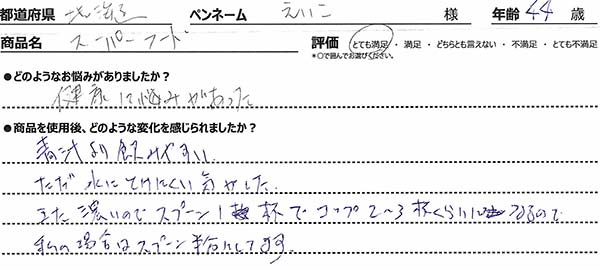 都道府県 北海道 ペンネーム えいこ 様 年齢 44 歳
商品名 スーパーフード 評価 とても満足・満足・どちらとも言えない・不満足・とても不満足
*○で囲んでお選びください。
●どのようなお悩みがありましたか?
健康に悩みがあった
●商品を使用後、どのような変化を感じられましたか?
青汁より飲みやすい。
ただ水にとけにくい気がした。
また濃いのでスプーン1杯でコップ2〜3杯くらいになるので
私の場合はスプーン半分にしてます。